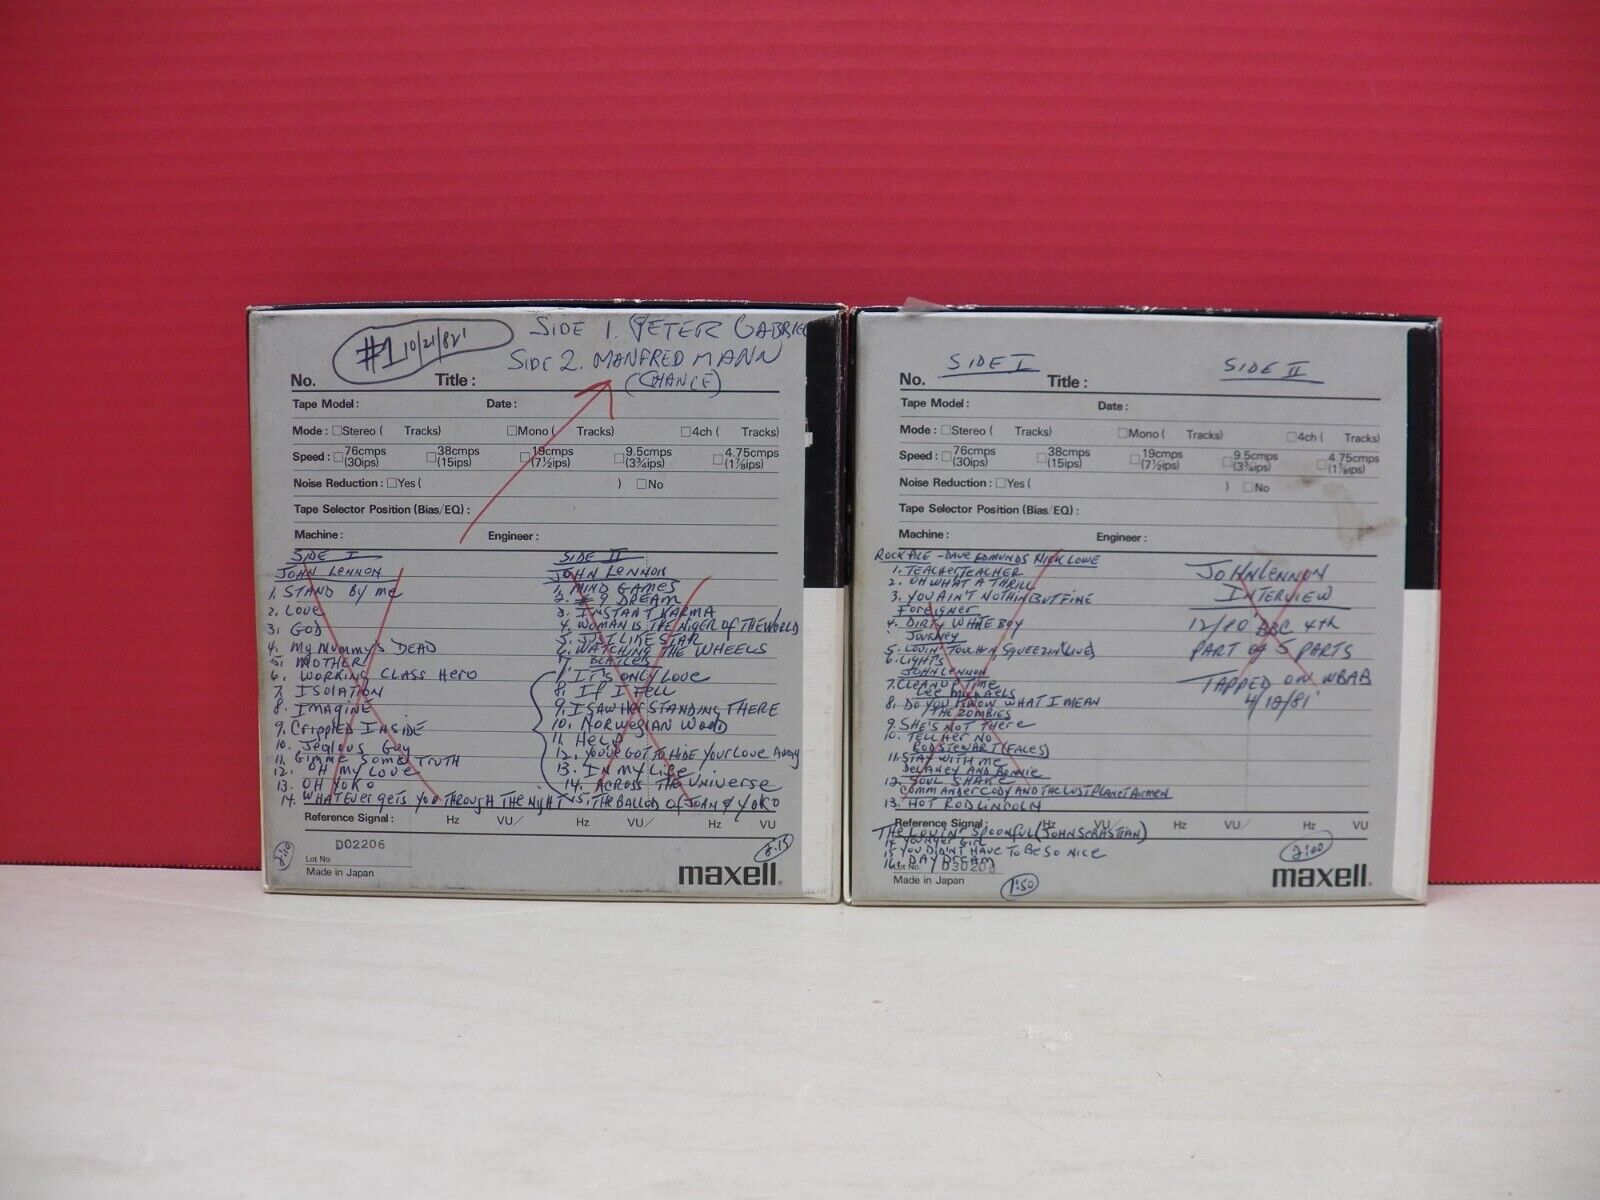 #1 10/21/82'
SIDE 1. PETER GABRIEL
SIDE 2. MANFRED MANN
(CHANCE)
No. Title :
Tape Model : Date :
Mode : □Stereo ( Tracks) □Mono ( Tracks) □4ch ( Tracks)
Speed : □76cmps (30ips) □38cmps (15ips) □19cmps (7½ips) □9.5cmps (3¾ips) □4.75cmps (1⅞ips)
Noise Reduction : □Yes ( ) □No
Tape Selector Position (Bias/EQ) :
Machine : Engineer :
SIDE I
JOHN LENNON
1. STAND By me
2. LOVE
3. GOD
4. My Mummy's DEAD
5. MOTHER
6. WORKING CLASS HERO
7. ISOLATION
8. IMAGINE
9. CRIPPLED INSIDE
10. Jealous Guy
11. Gimme Some TRUTH
12. OH MY LOVE
13. OH YOKO
14. WHATEVER gets YOU THROUGH THE NIGHT
SIDE II
JOHN LENNON
1. MIND GAMES
2. #9 DREAM
3. INSTANT KARMA
4. WOMAN IS THE NIGER OF THE WORLD
5. JUST LIKE STAR
6. WATCHING THE WHEELS
7. BEATLES
IT'S ONLY LOVE
8. If I FELL
9. I SAW Her STANDING THERE
10. NORWEGIAN WOOD
11. HELP
12. YOU'VE GOT TO HIDE YOUR LOVE AWAY
13. IN MY LIFE
14. ACROSS THE UNIVERSE
15. THE BALLAD OF JOHN & YOKO
Reference Signal : Hz VU/ Hz VU/ Hz VU
D02206
Lot No.
Made in Japan
2:10
2:15
maxell.
SIDE I SIDE II
No. Title :
Tape Model : Date :
Mode : □Stereo ( Tracks) □Mono ( Tracks) □4ch ( Tracks)
Speed : □76cmps (30ips) □38cmps (15ips) □19cmps (7½ips) □9.5cmps (3¾ips) □4.75cmps (1⅞ips)
Noise Reduction : □Yes ( ) □No
Tape Selector Position (Bias/EQ) :
Machine : Engineer :
ROCKPILE - DAVE EDMUNDS NICK LOWE
1. TEACHER TEACHER
2. OH WHAT A THRILL
3. YOU AIN'T NOTHIN BUT FINE
Foreigner
4. DIRTY WHITE BOY
JOURNEY
5. LOVIN' TOUCHIN SQUEEZIN (LIVE)
6. LIGHTS
JOHN LENNON
7. CLEANUP TIME
Lee MICHAELS
8. DO YOU KNOW WHAT I MEAN
THE ZOMBIES
9. SHE'S NOT THERE
10. TELL HER NO
ROD STEWART (FACES)
11. STAY WITH ME
DELANEY AND BONNIE
12. SOUL SHAKE
COMMANDER CODY AND THE LOST PLANET AIRMEN
13. HOT ROD LINCOLN
Reference Signal : Hz VU/ Hz VU/ Hz VU
THE LOVIN' SPOONFUL (JOHN SEBASTIAN)
14. YOUNGER GIRL
15. YOU DIDN'T HAVE TO BE SO NICE
16. DAYDREAM
JOHN LENNON
INTERVIEW
12/80 BBC 4th
PART OF 5 PARTS
TAPPED ON WBAB
4/18/81'
Lot No.
Made in Japan
1:50
2:00
maxell.